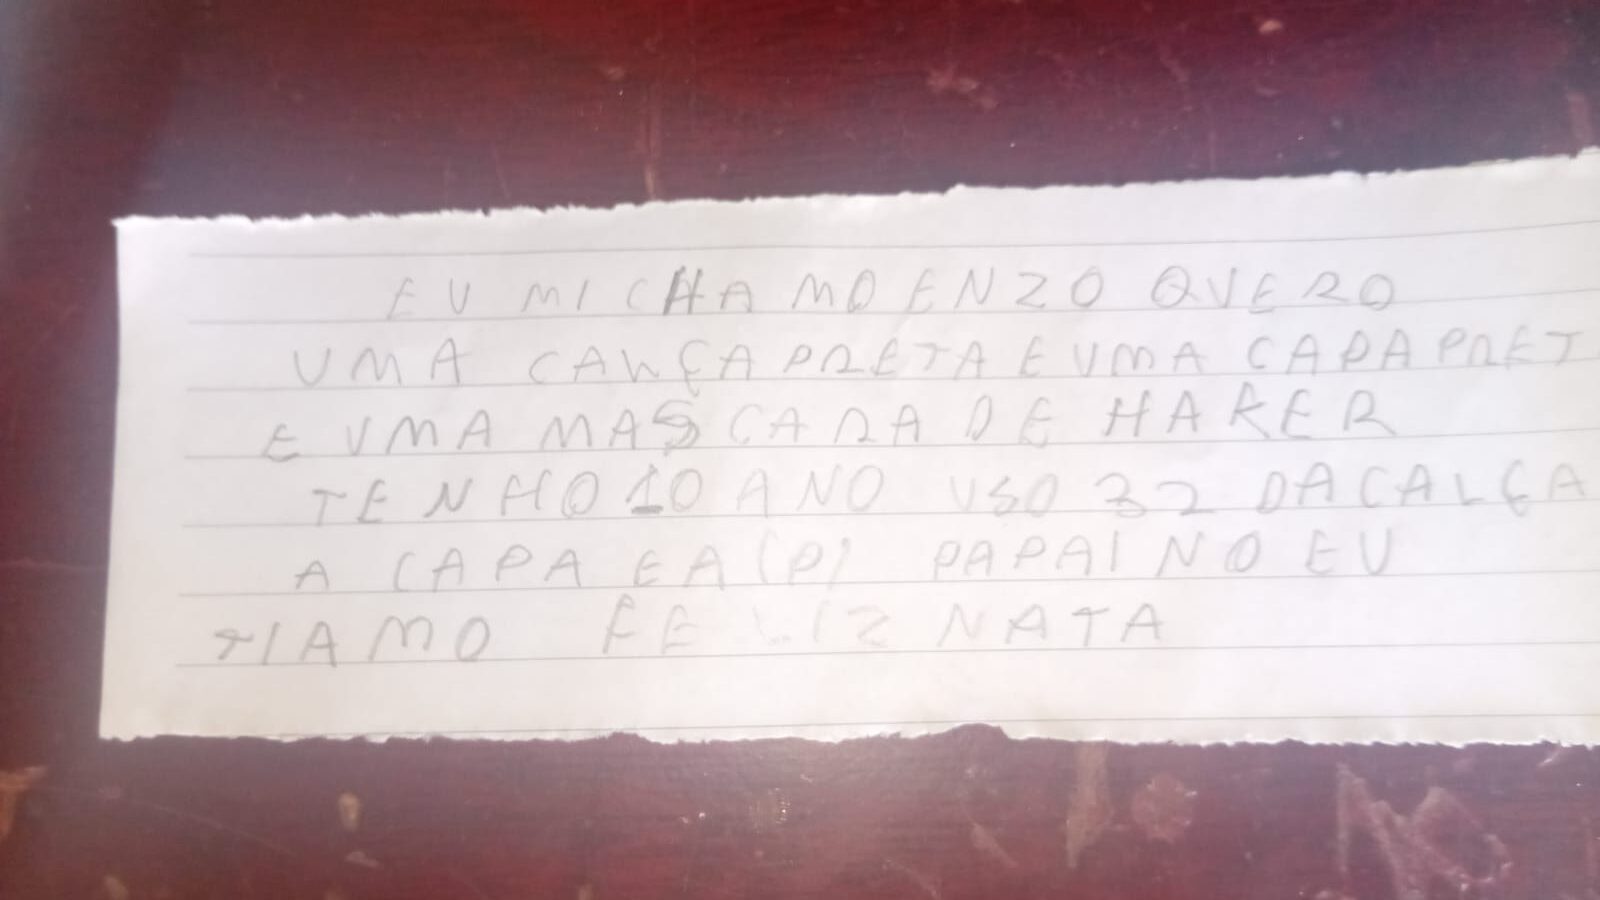 EU MICHAMO ENZO QUERO
UMA CALÇA PRETA E UMA CAPA PRET
E UMA MASCARA DE HAKER
TENHO 10 ANO USO 32 DA CALÇA
A CAPA E A (P) PAPAI NOEU
TIAMO FELIZ NATA